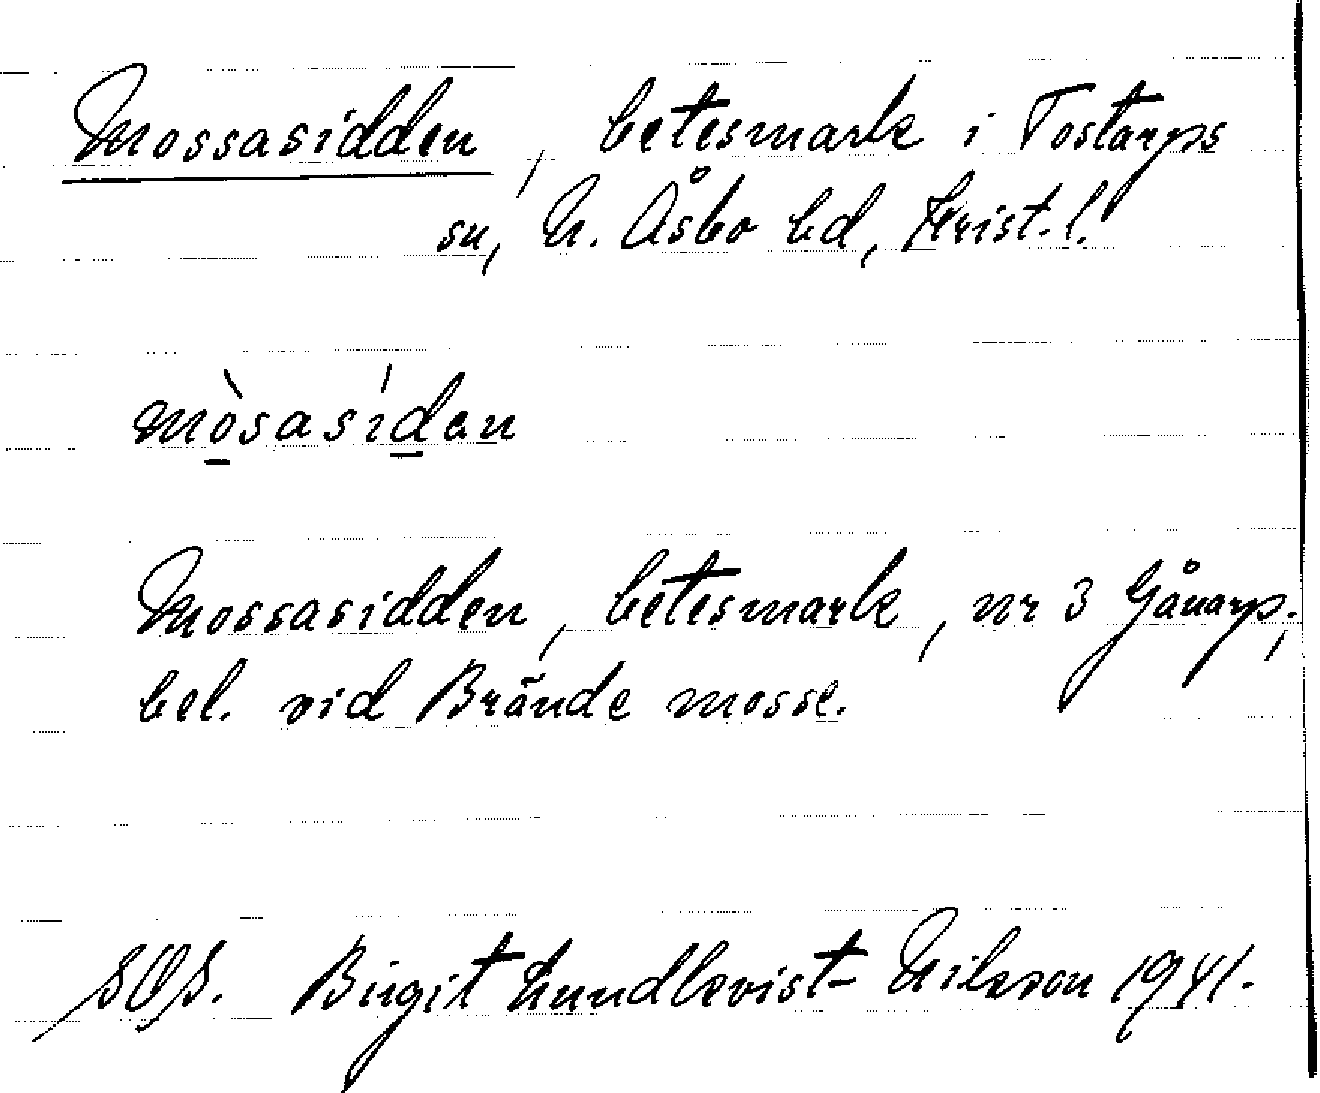 Mossasidden, betesmark i Tostarps
sn, N. Åsbo hd, Krist. l.
mòsasíden
Mossasidden, betesmark, nr 3 Gånarp,
bel. vid Brände mosse.
SOS. Birgit Lundkvist-Nilsson 1941.